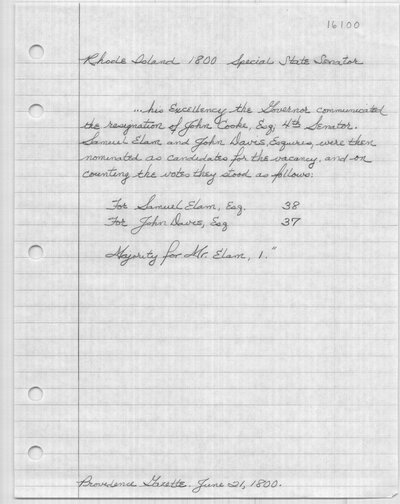 16100
Rhode Island 1800 Special State Senator
...his Excellency the Governor communicated
the resignation of John Cooke, Esq, 4th Senator.
Samuel Elam and John Davis, Esquires, were then
nominated as candidates for the vacancy, and on
counting the votes they stood as follows:
For Samuel Elam, Esq. 38
For John Davis, Esq 37
Majority for Mr. Elam, 1."
Providence Gazette. June 21, 1800.